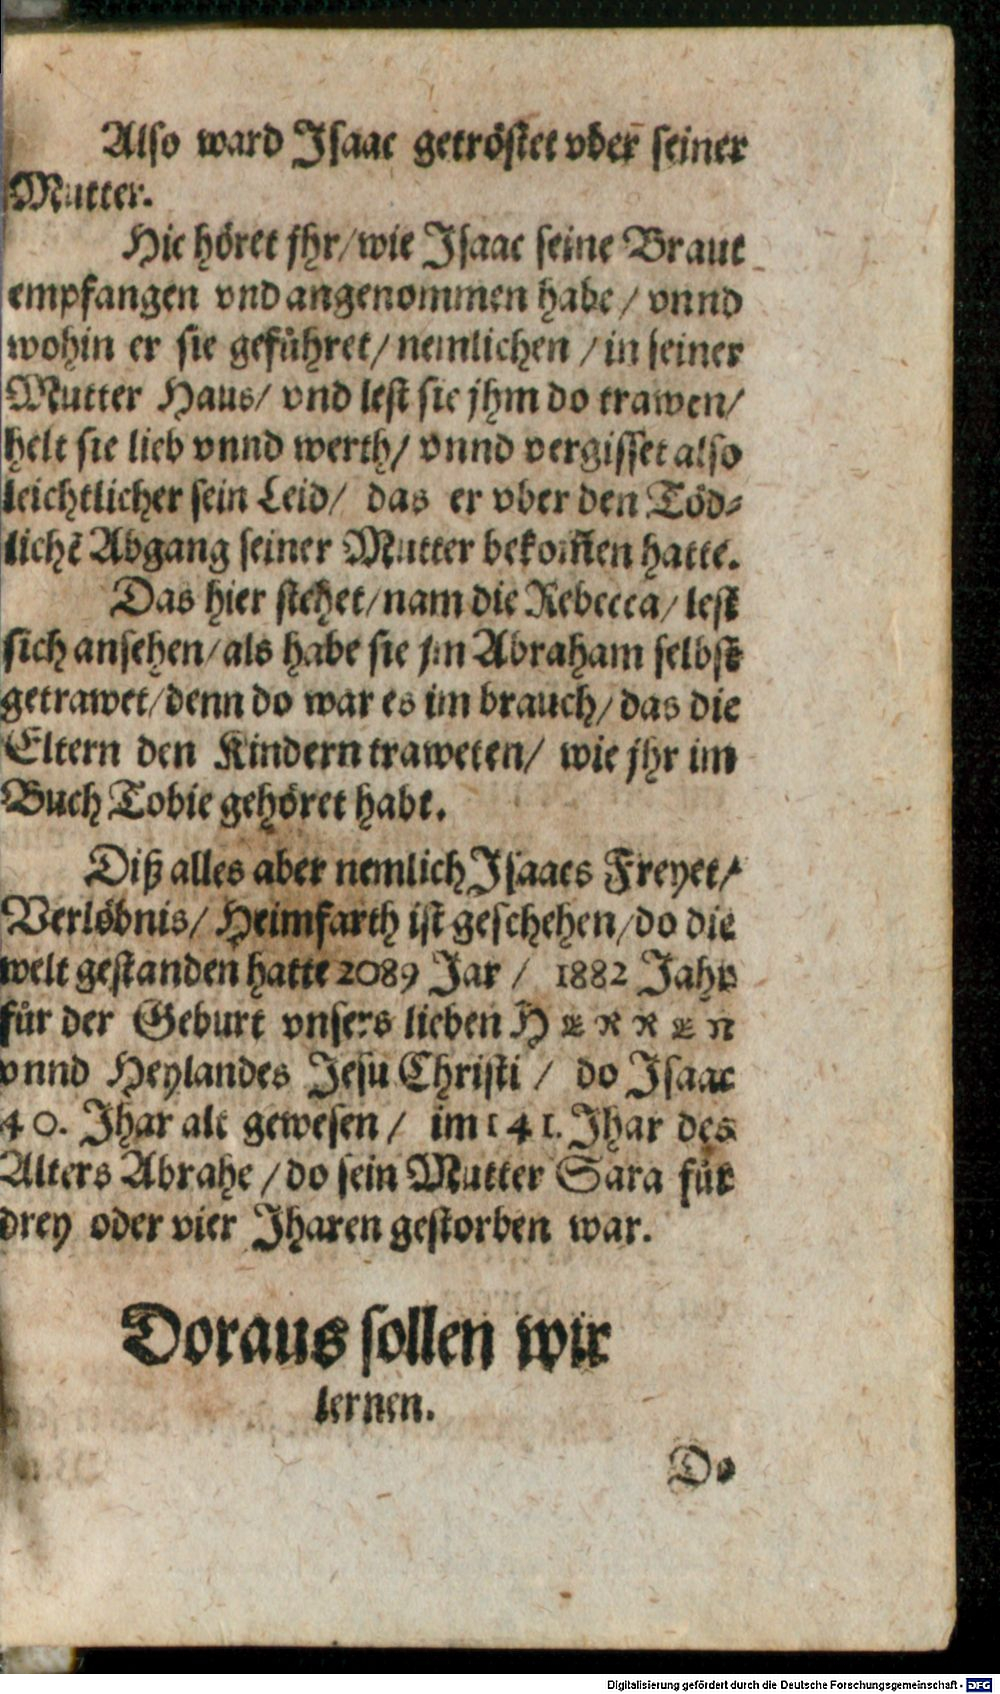 Also ward Isaac getröstet vber seiner
Mutter.
Hie höret jhr/ wie Isaac seine Braut
empfangen vnd angenommen habe / vnnd
wohin er sie geführet/ nemlichen / in seiner
Mutter Haus/ vnd lest sie jhm do trawen/
helt sie lieb vnnd werth/ vnnd vergisset also
leichtlicher sein Leid/ das er vber den Töd-
lichē Abgang seiner Mutter bekom̃en hatte.
Das hier stehet/ nam die Rebecca/ lest
sich ansehen/ als habe sie jm Abraham selbst
getrawet/ denn do war es im brauch/ das die
Eltern den Kindern traweten/ wie jhr im
Buch Tobie gehöret habt.
Diß alles aber nemlich Isaacs Freyet/
Verlöbnis/ Heimfarth ist geschehen/ do die
welt gestanden hatte 2089 Jar / 1882 Jahr
für der Geburt vnsers lieben HERREN
vnnd Heylandes Jesu Christi / do Isaac
40. Jhar alt gewesen / im 141. Jhar des
Alters Abrahe / do sein Mutter Sara für
drey oder vier Jharen gestorben war.
Doraus sollen wir
lernen.
Do
Digitalisierung gefördert durch die Deutsche Forschungsgemeinschaft - DFG